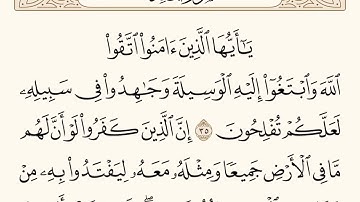 يَـٰٓأَيُّهَا ٱلَّذِينَ ءَامَنُوا۟ ٱتَّقُوا۟
ٱللَّهَ وَٱبْتَغُوٓا۟ إِلَيْهِ ٱلْوَسِيلَةَ وَجَـٰهِدُوا۟ فِى سَبِيلِهِۦ
لَعَلَّكُمْ تُفْلِحُونَ ٣٥ إِنَّ ٱلَّذِينَ كَفَرُوا۟ لَوْ أَنَّ لَهُم
مَّا فِى ٱلْأَرْضِ جَمِيعًا وَمِثْلَهُۥ مَعَهُۥ لِيَفْتَدُوا۟ بِهِۦ مِنْ